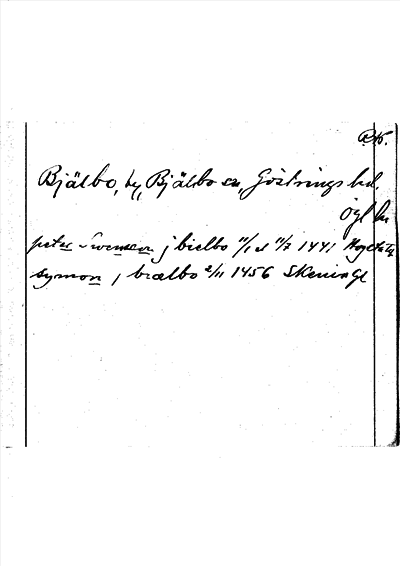 Bjälbo, by, Bjälbo sn, Göstrings hd.
Ögl. ln
peter Swensson j bielbo 11/1 el 11/7 1441
symon j brælbo 2/11 1456 Skeninge